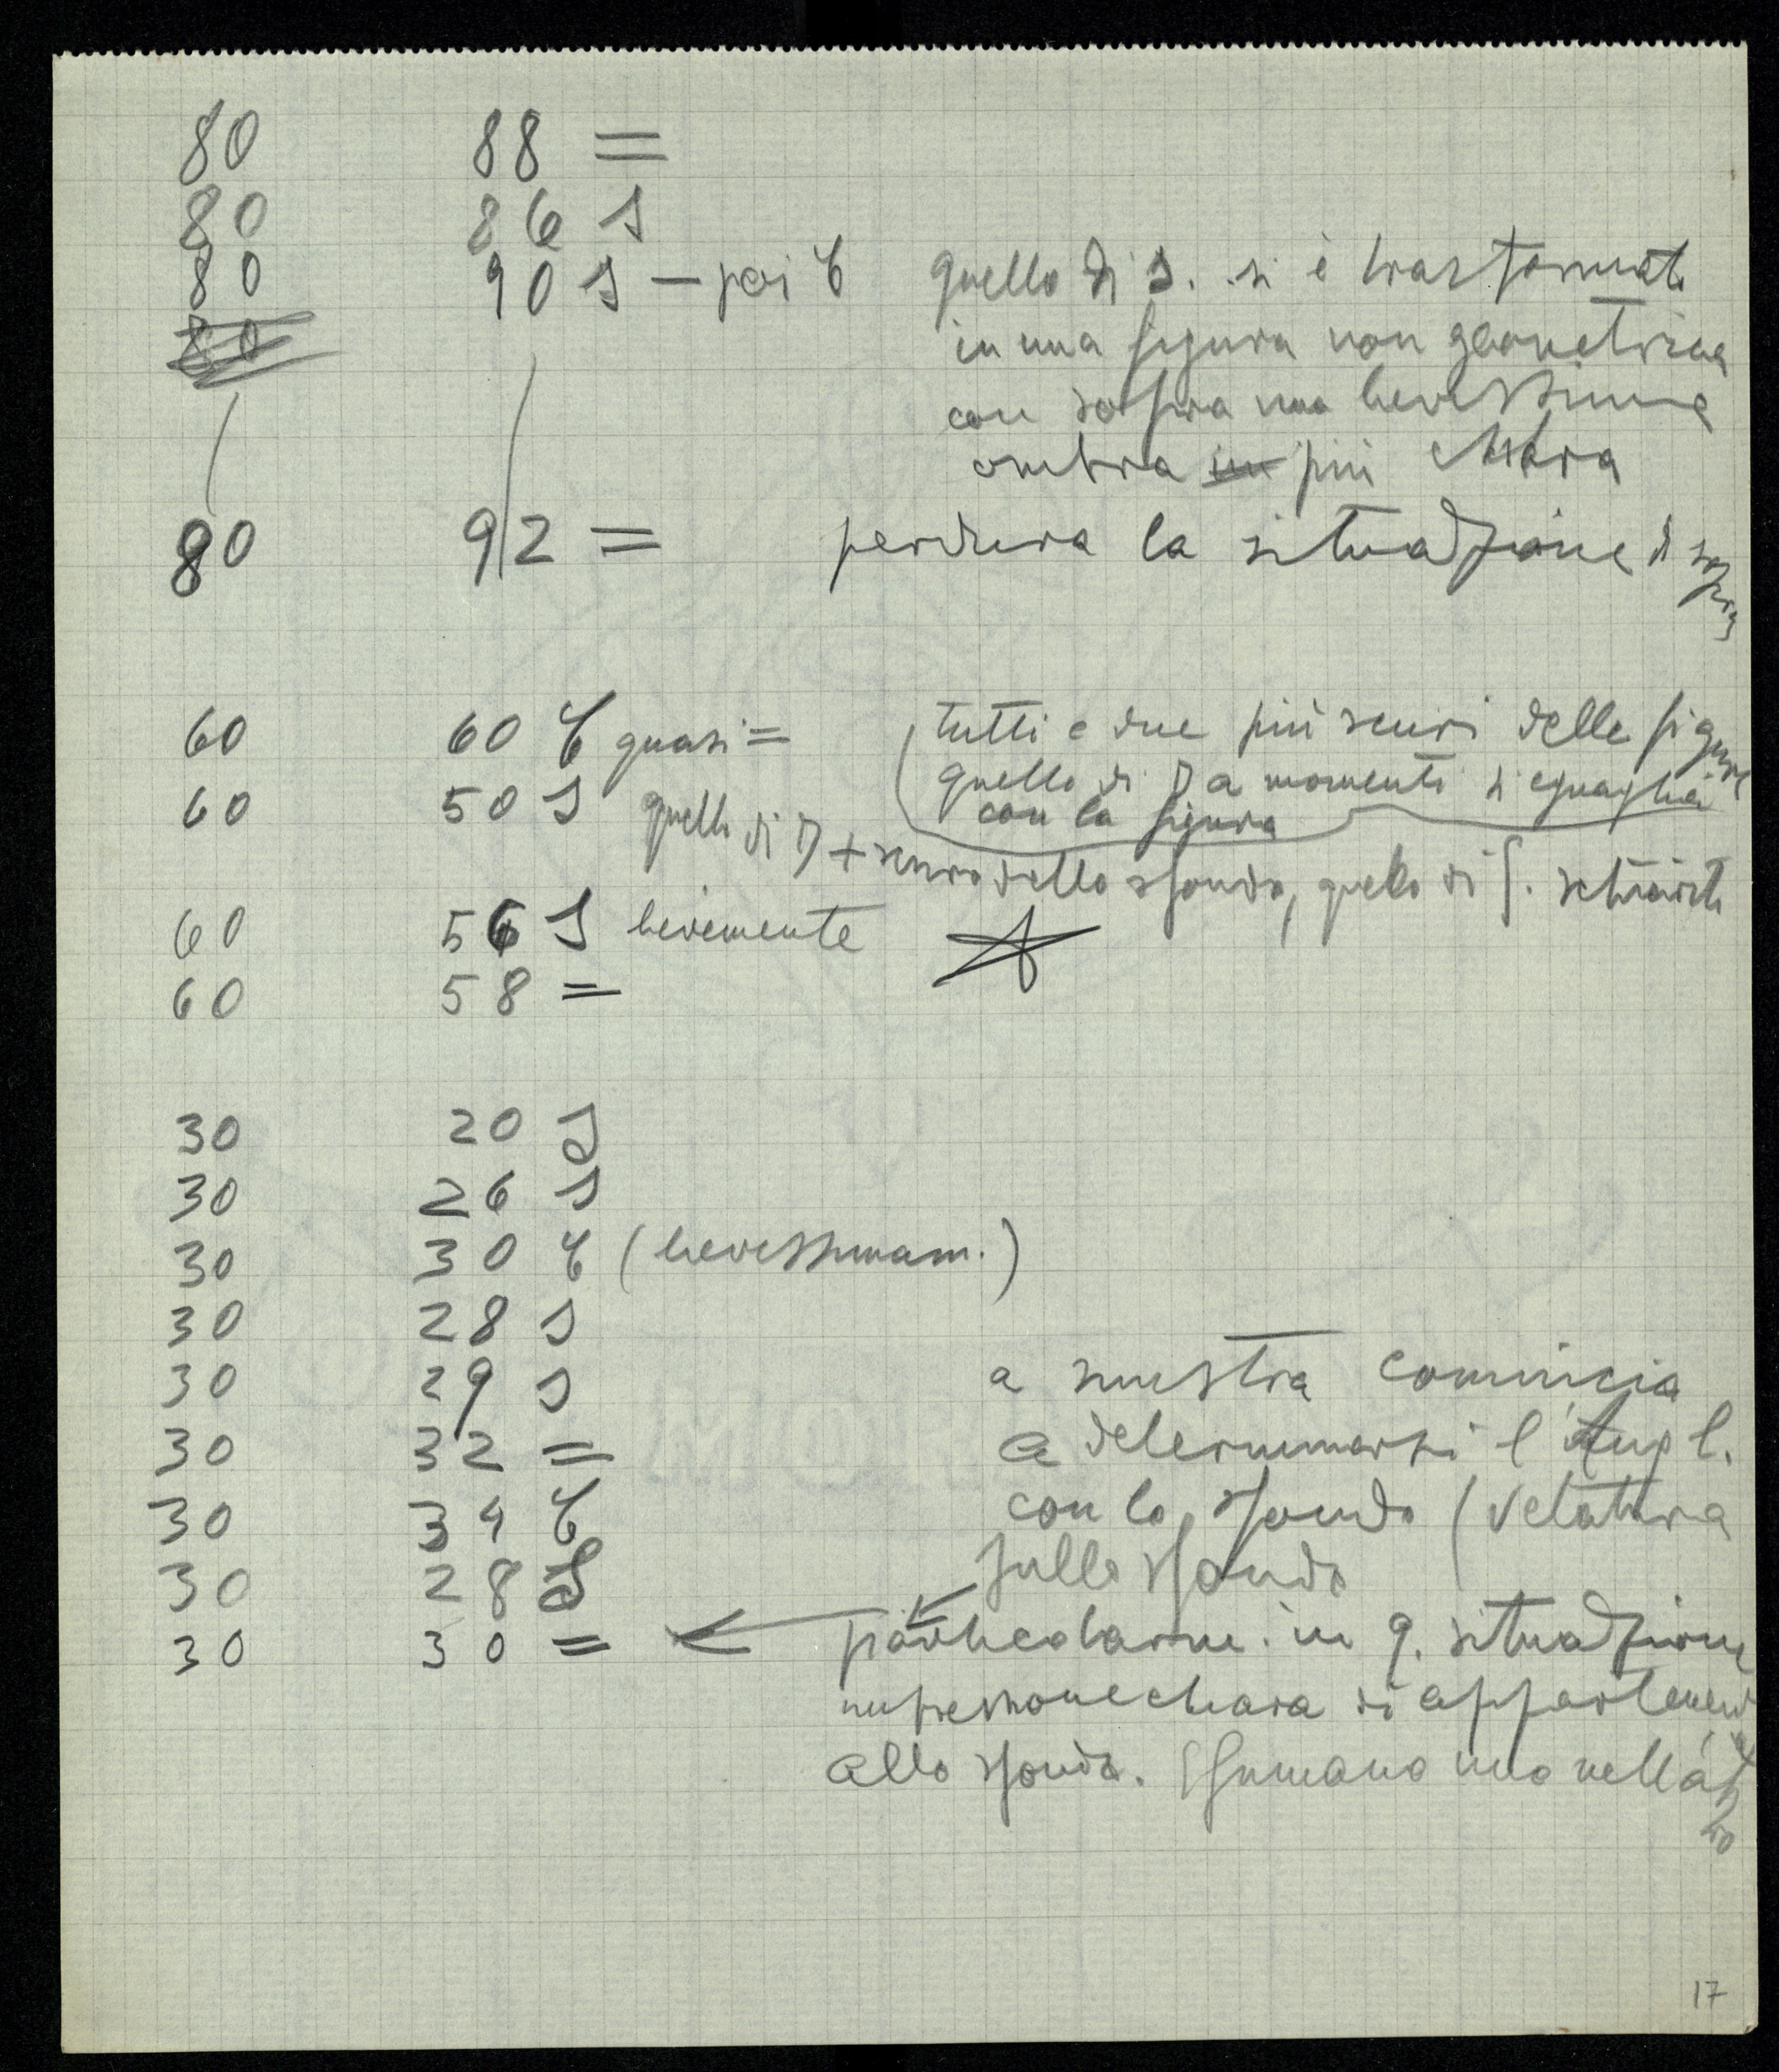 80 88 =
80 86 S
80 90 S — poi C quello di S. si è trasformato
80
in una figura non geometrica
con sopra una lievissima
ombra in più chiara
80 92 = perdura la situazione di sopra
60 60 C quasi = tutti e due più scuri delle figure
quello di D a momenti si eguaglia
con la figura
60 50 S quello di D + scuro dello sfondo, quello di S. schiarito
60 56 S lievemente
60 58 =
30 20 S
30 26 S
30 30 C (lievissimam.)
30 28 S
30 29 S a sinistra comincia
30 32 = a determinarsi l'
30 34 C con lo sfondo (velatura
30 28 S sullo sfondo
30 30 = ← particolarm. in q. situazione
impressione chiara di
allo sfondo. Sfumano uno nell'altro
17